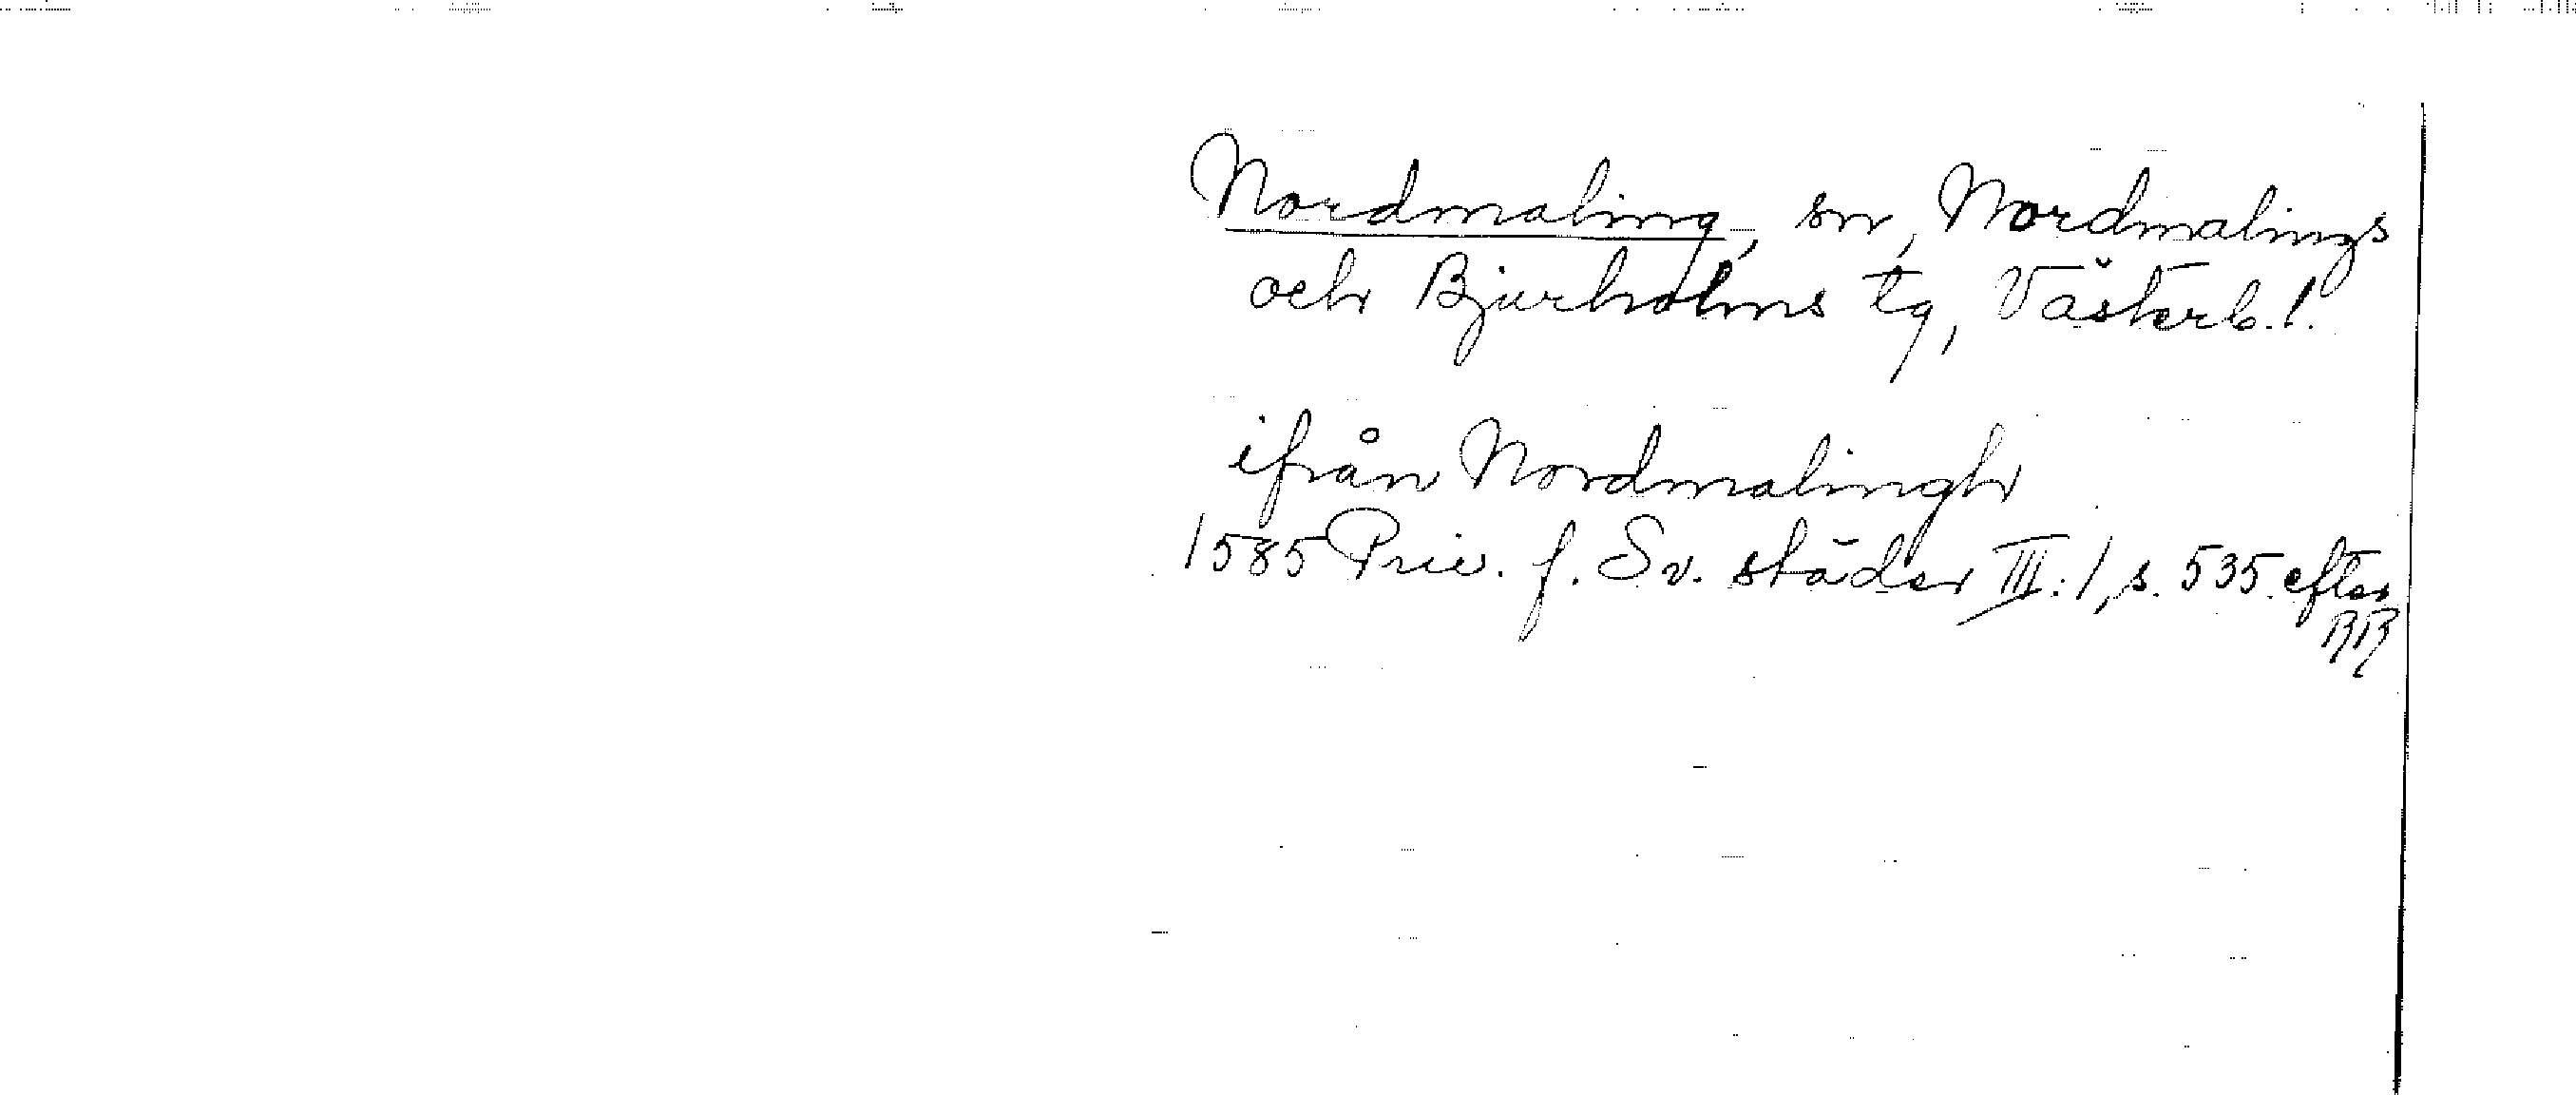 Nordmaling, sn, Nordmalings
och Bjurholms tg, Västerb. l.
ifrån Nordmalingh
1585 Priv. f. Sv. städer III:1, s. 535 efter
RR